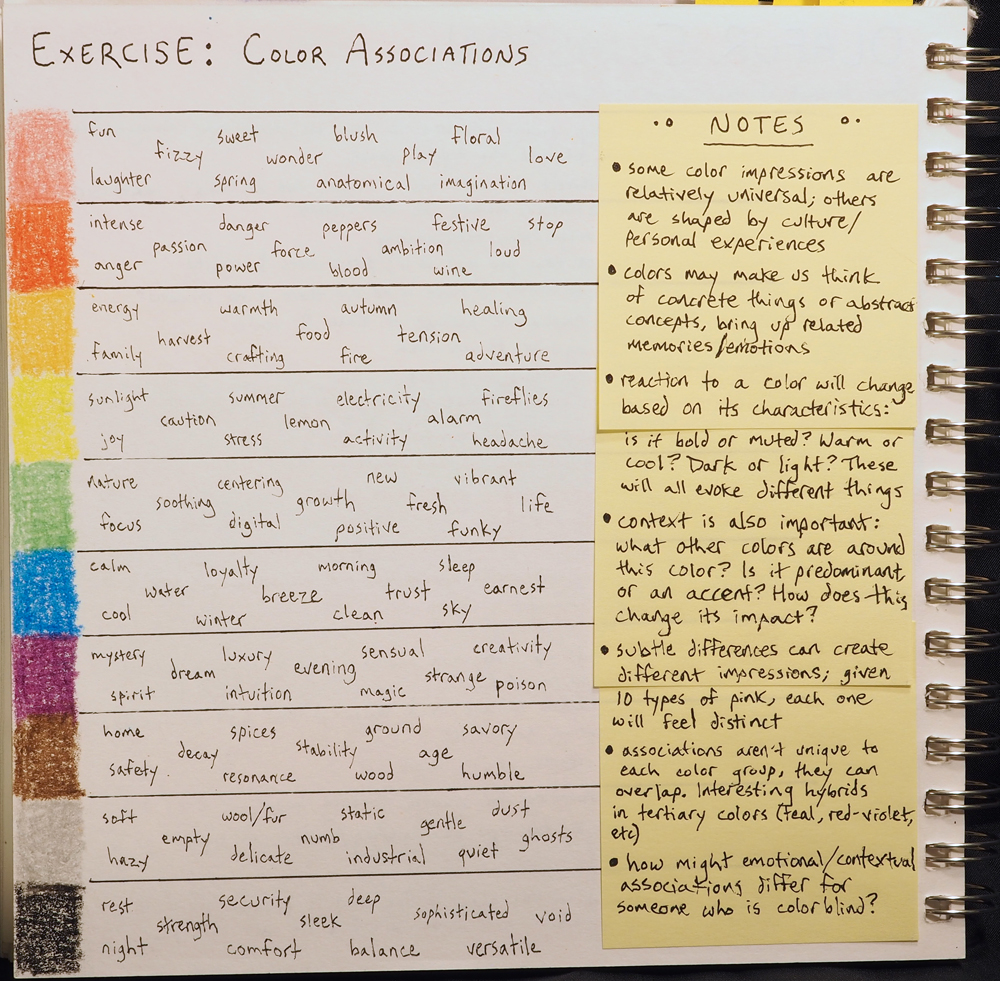 EXERCISE: COLOR ASSOCIATIONS
fun sweet blush floral
fizzy wonder play love
laughter spring anatomical imagination
intense danger peppers festive stop
passion force ambition loud
anger power blood wine
energy warmth autumn healing
harvest food tension
family crafting fire adventure
sunlight summer electricity fireflies
caution lemon alarm
joy stress activity headache
nature centering new vibrant
soothing growth fresh life
focus digital positive funky
calm loyalty morning sleep
water breeze trust earnest
cool winter clean sky
mystery luxury sensual creativity
dream evening strange
spirit intuition magic poison
home spices ground savory
decay stability age
safety resonance wood humble
soft wool/fur static dust
empty numb gentle ghosts
hazy delicate industrial quiet
rest security deep
strength sleek sophisticated void
night comfort balance versatile
NOTES
• some color impressions are
relatively universal; others
are shaped by culture/
personal experiences
• colors may make us think
of concrete things or abstract
concepts, bring up related
memories/emotions
• reaction to a color will change
based on its characteristics:
is it bold or muted? Warm or
cool? Dark or light? These
will all evoke different things
• context is also important:
what other colors are around
this color? Is it predominant
or an accent? How does this
change its impact?
• subtle differences can create
different impressions; given
10 types of pink, each one
will feel distinct
• associations aren't unique to
each color group, they can
overlap. Interesting hybrids
in tertiary colors (teal, red-violet,
etc)
• how might emotional/contextual
associations differ for
someone who is colorblind?